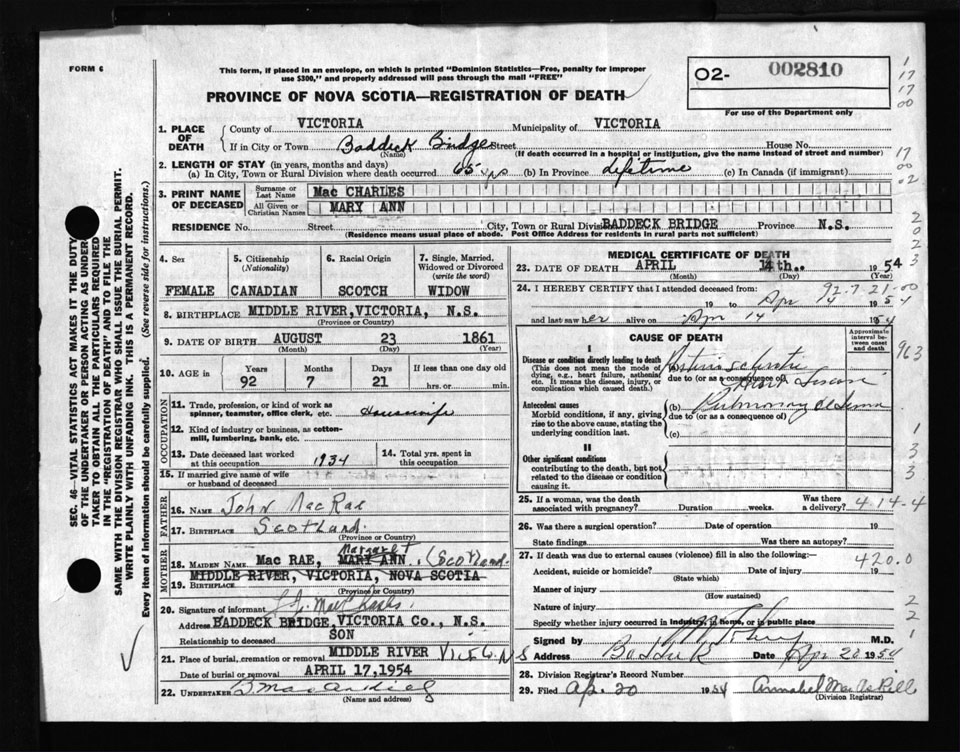 FORM 6
This form, if placed in an envelope, on which is printed "Dominion Statistics—Free, penalty for improper
use $300," and properly addressed will pass through the mail "FREE"
PROVINCE OF NOVA SCOTIA—REGISTRATION OF DEATH
O2- 002810
For use of the Department only
1. PLACE OF DEATH
County of VICTORIA Municipality of VICTORIA
If in City or Town Baddeck Bridge Street House No.
(Name) (If death occurred in a hospital or institution, give the name instead of street and number)
2. LENGTH OF STAY (in years, months and days)
(a) In City, Town or Rural Division where death occurred 65 yrs (b) In Province lifetime (c) In Canada (if immigrant)
3. PRINT NAME OF DECEASED
Surname or Last Name Mac CHARLES
All Given or Christian Names MARY ANN
RESIDENCE No. Street City, Town or Rural Division BADDECK BRIDGE Province N.S.
(Residence means usual place of abode. Post Office Address for residents in rural parts not sufficient)
4. Sex
FEMALE
5. Citizenship
(Nationality)
CANADIAN
6. Racial Origin
SCOTCH
7. Single, Married, Widowed or Divorced
(write the word)
WIDOW
8. BIRTHPLACE MIDDLE RIVER,VICTORIA, N.S.
(Province or Country)
9. DATE OF BIRTH AUGUST 23 1861
(Month) (Day) (Year)
10. AGE in Years Months Days If less than one day old
92 7 21 hrs. or min.
OCCUPATION
11. Trade, profession, or kind of work as
spinner, teamster, office clerk, etc. Housewife
12. Kind of industry or business, as cotton-
mill, lumbering, bank, etc.
13. Date deceased last worked
at this occupation 1934
14. Total yrs. spent in
this occupation
15. If married give name of wife
or husband of deceased
FATHER
16. NAME John MacRae
17. BIRTHPLACE Scotland
(Province or Country)
MOTHER
18. MAIDEN NAME Mac RAE, Margaret MARY ANN. (Scotland
19. BIRTHPLACE MIDDLE RIVER, VICTORIA, NOVA SCOTIA
(Province or Country)
20. Signature of informant MacCharles
Address BADDECK BRIDGE,VICTORIA Co., N.S.
Relationship to deceased SON
21. Place of burial, cremation or removal MIDDLE RIVER Vict Co. N S
Date of burial or removal APRIL 17,1954
22. UNDERTAKER
(Name and address)
MEDICAL CERTIFICATE OF DEATH
23. DATE OF DEATH APRIL 14th. 1954
(Month) (Day) (Year)
24. I HEREBY CERTIFY that I attended deceased from: 92-7-21-00
19 to Apr 14 1954
and last saw her alive on Apr 14 1954
CAUSE OF DEATH
Approximate interval between onset and death
I
Disease or condition directly leading to death
(This does not mean the mode of
dying, e.g., heart failure, asthenia
etc. It means the disease, injury, or
complication which caused death.)
due to (or as a consequence of)
Antecedent causes
Morbid conditions, if any, giving
rise to the above cause, stating the
underlying condition last.
(b) Pulmonary Oedema
due to (or as a consequence of)
(c)
II
Other significant conditions
contributing to the death, but not
related to the disease or condition
causing it.
25. If a woman, was the death
associated with pregnancy? Duration weeks. Was there a delivery? 4-14-4
26. Was there a surgical operation? Date of operation 19
State findings Was there an autopsy?
27. If death was due to external causes (violence) fill in also the following:— 420.0
Accident, suicide or homicide? Date of injury 19
(State which)
Manner of injury
(How sustained)
Nature of injury
Specify whether injury occurred in Industry, in home, or in public place
Signed by M.D.
Address Baddeck Date Apr 20 1954
28. Division Registrar's Record Number
29. Filed Ap. 20 1954 Annabel MacAskill
(Division Registrar)
SEC. 46—VITAL STATISTICS ACT MAKES IT THE DUTY
OF THE UNDERTAKER OR PERSON ACTING AS UNDER-
TAKER TO OBTAIN ALL THE PARTICULARS REQUIRED
IN THE "REGISTRATION OF DEATH" AND TO FILE THE
SAME WITH THE DIVISION REGISTRAR WHO SHALL ISSUE THE BURIAL PERMIT.
WRITE PLAINLY WITH UNFADING INK. THIS IS A PERMANENT RECORD.
Every item of information should be carefully supplied. (See reverse side for instructions.)
1
17
17
00
17
00
02
2
0
2
3
963
1
3
3
2
2
1